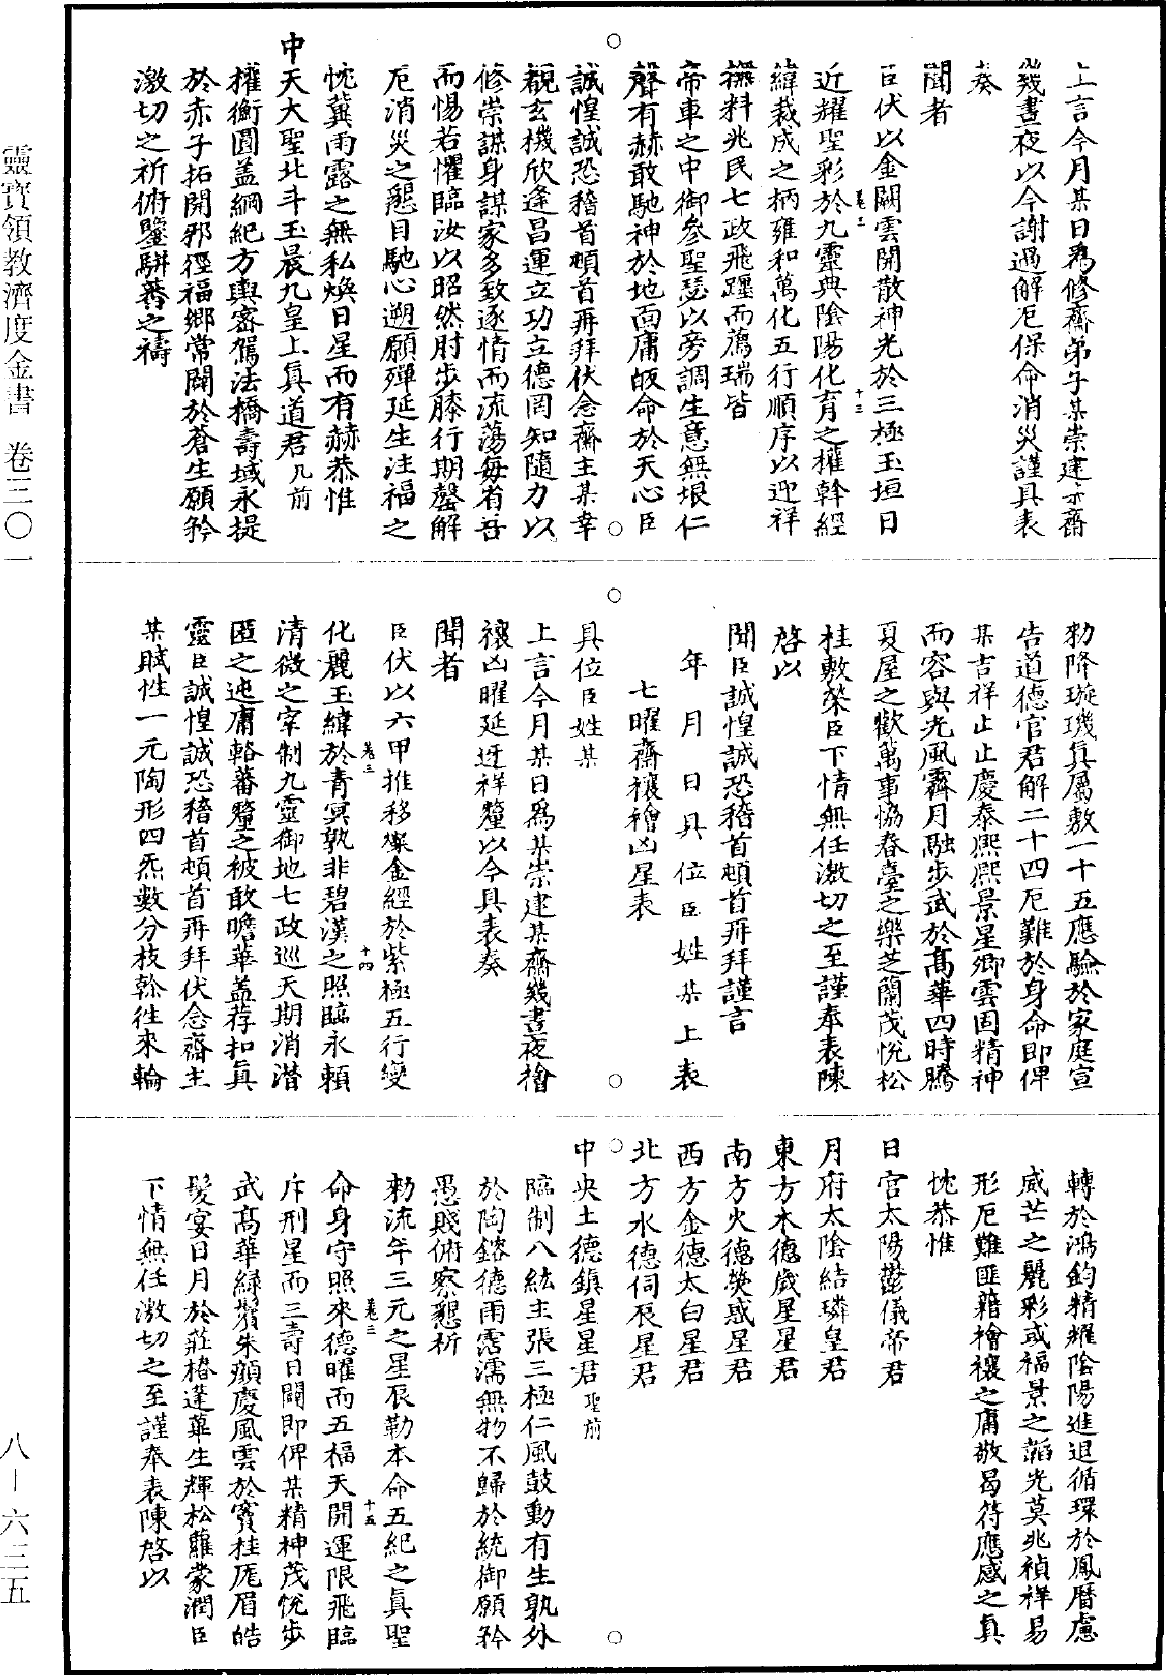 上言今月某日爲修齋弟子某崇建亦齋
幾晝夜以今謝過解厄保命消災謹具表
奏
聞者
臣伏以金闕雲開散神光於三極玉垣日
卷三 十三
近耀聖彩於九靈典陰陽化育之權幹經
緯裁成之柄雍和萬化五行順序以迎祥
撫料兆民七政飛躔而薦瑞皆
帝車之中御參聖瑟以旁調生意無垠仁
聲有赫敢馳神於地面庸皈命於天心臣
誠惶誠恐稽首頓首再拜伏念齋主某幸
覩玄機欣逢昌運立功立德罔知隨力以
修崇謀身謀家多致逐情而流蕩每省吾
而惕若懼臨汝以昭然肘步膝行期罄解
厄消災之懇目馳心遡願殫延生注福之
忱冀雨露之無私煥日星而有赫恭惟
中天大聖北斗玉晨九皇上眞道君几前
權衡圓蓋綱紀方輿密駕法橋壽域永提
於赤子拓開邪徑福鄉常闢於蒼生願矜
激切之祈俯鑒駢蕃之禱
勑降璇璣眞屬敷一十五應驗於家庭宣
告道德官君解二十四厄難於身命即俾
某吉祥止止慶泰熙熙景星卿雲固精神
而容與光風霽月融步武於高華四時騰
夏屋之歡萬事恊春臺之樂芝蘭茂悅松
桂敷榮臣下情無任激切之至謹奉表陳
啓以
聞臣誠惶誠恐稽首頓首再拜謹言
年 月 日具位臣姓某上表
七曜齋禳禬凶星表
具位臣姓某
上言今月某日爲某崇建某齋幾晝夜禬
禳凶曜延迓祥釐以今具表奏
聞者
臣伏以六甲推移燦金經於紫極五行變
卷三 十四
化麗玉緯於青冥孰非碧漢之照臨永賴
清微之宰制九靈御地七政巡天期消潛
匿之迍庸輅蕃釐之被敢瞻華蓋荐扣眞
靈臣誠惶誠恐稽首頓首再拜伏念齋主
某賦性一元陶形四炁數分枝榦徃來輪
轉於鴻鈞精耀陰陽進退循環於鳳曆慮
威芒之麗彩或福景之韜光莫兆禎祥易
形厄難匪藉禬禳之庸敬曷符應感之眞
忱恭惟
日宮太陽鬱儀帝君
月府太陰結璘皇君
東方木德歲星星君
南方火德熒惑星君
西方金德太白星君
北方水德伺辰星君
中央土德鎮星星君聖前
臨制八紘主張三極仁風鼓動有生孰外
於陶鎔德雨霑濡無物不歸於統御願矜
愚賤俯察懇祈
勑流年三元之星辰勒本命五紀之眞聖
命身守照來德曜而五福天開運限飛臨
卷三 十五
斥刑星而三壽日闢即俾某精神茂悅步
武高華綠鬢朱顏慶風雲於竇桂厖眉皓
髮宴日月於莊椿蓬蓽生輝松蘿蒙潤臣
下情無任激切之至謹奉表陳啓以
靈寶領教濟度金書 卷三〇一
八—六三五